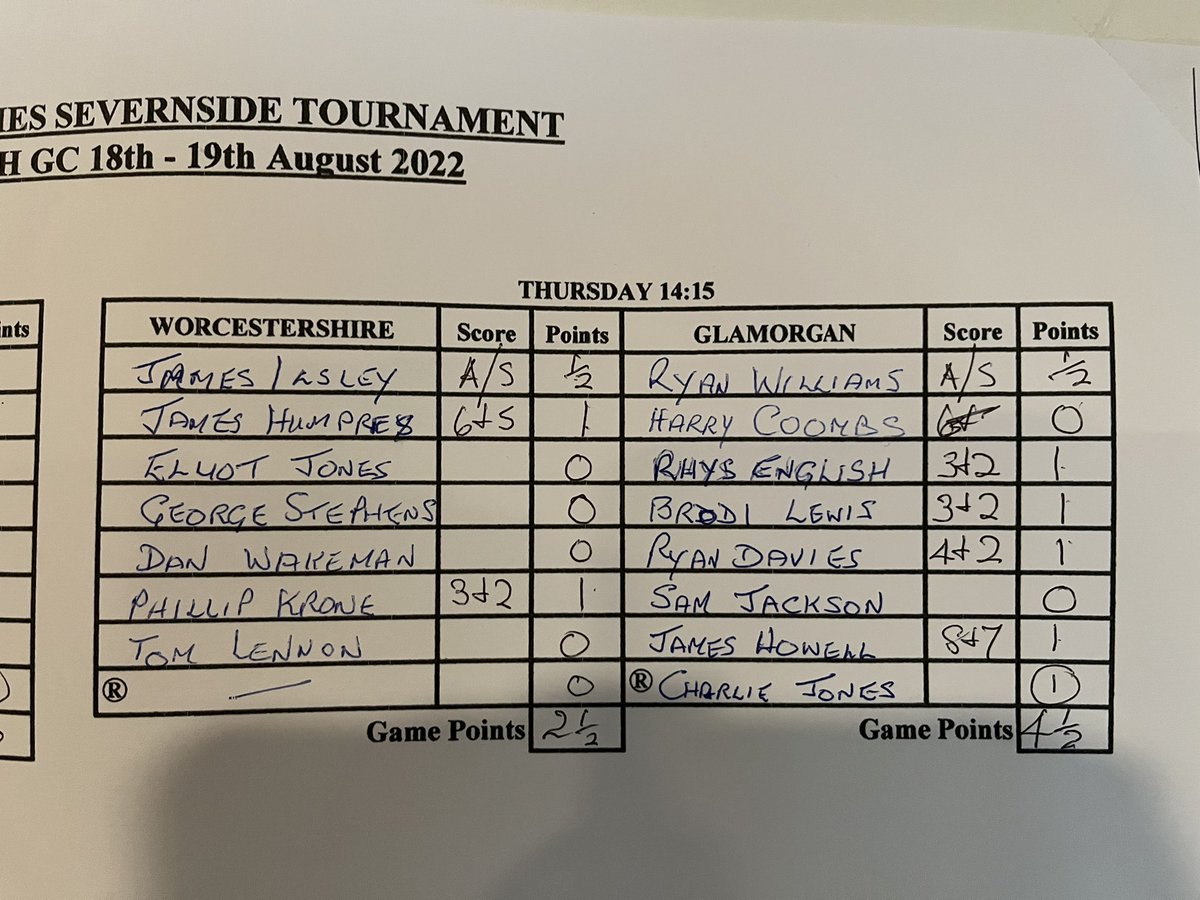 IES SEVERNSIDE TOURNAMENT
H GC 18th - 19th August 2022
THURSDAY 14:15
ints
WORCESTERSHIRE Score Points GLAMORGAN Score Points
JAMES ILSLEY A/S 1/2 RYAN WILLIAMS A/S 1/2
JAMES HUMPRES 6+5 1 HARRY COOMBS 0
ELIOT JONES 0 RHYS ENGLISH 3+2 1
GEORGE STEPHENS 0 BRODI LEWIS 3+2 1
DAN WAKEMAN 0 RYAN DAVIES 4+2 1
PHILLIP KRONE 3+2 1 SAM JACKSON 0
TOM LENNON 0 JAMES HOWELL 8+7 1
® — 0 ® CHARLIE JONES 1
Game Points 2 1/2 Game Points 4 1/2